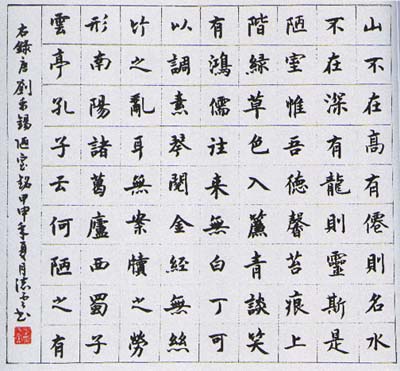 山不在高有僊則名水
不在深有龍則靈斯是
陋室惟吾德馨苔痕上
階緑草色入簾青談笑
有鴻儒往来無白丁可
以調素琴閲金經無絲
竹之亂耳無案牘之勞
形南陽諸葛廬西蜀子
雲亭孔子云何陋之有
右錄唐劉禹錫陋室銘甲申年夏月书